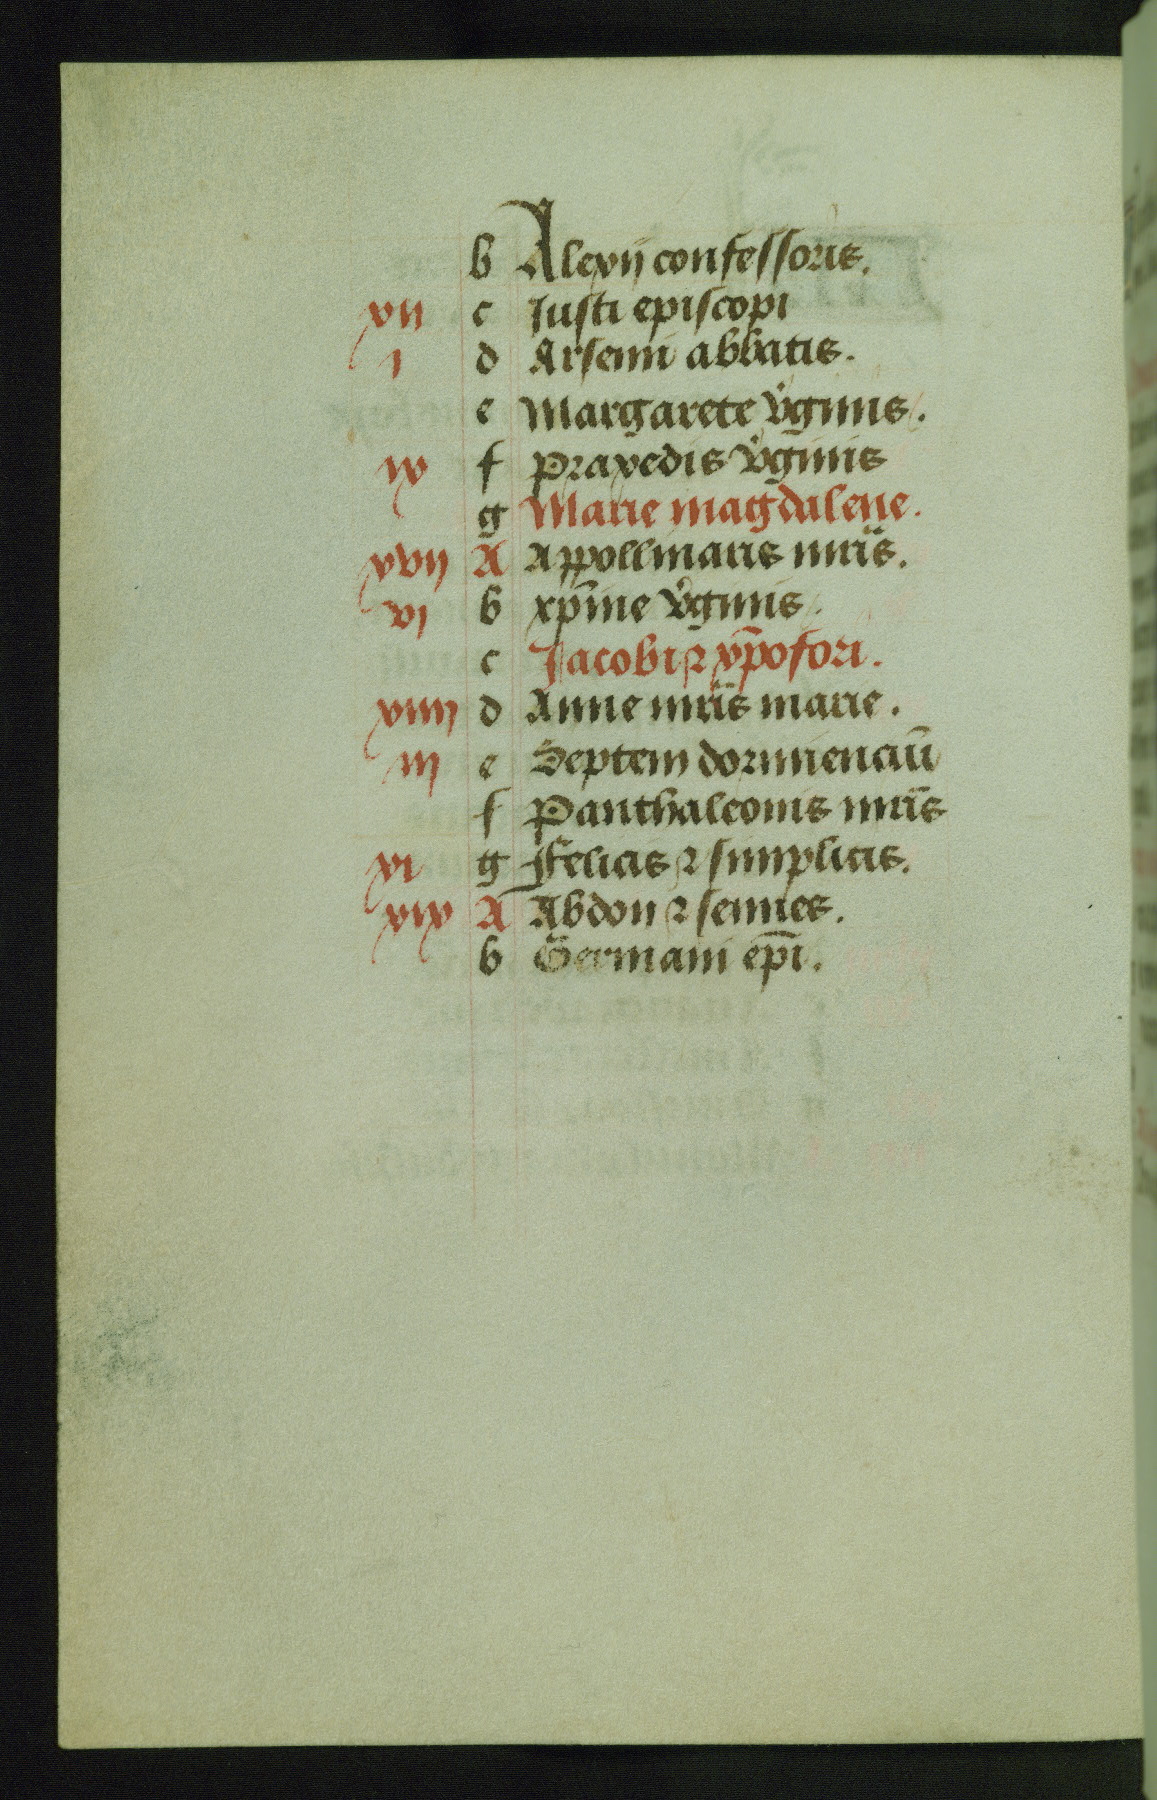 b Alexij confessoris.
xij c Justi episcopi
j d Arsenii abbatis.
e Margarete v̾ginis.
ix f Praxedis v̾ginis
g Marie magdalene.
xvij A Appollinaris mr̄is.
vj b xp̄ine v̾ginis.
c Jacobi ⁊ xp̄ofori.
xiiij d Anne mr̄is marie.
iij e Septem dormienciū
f Panthaleonis mr̄is
xi g Felicis ⁊ simplicis.
xix A Abdon ⁊ sennes.
b Germani ep̄i.